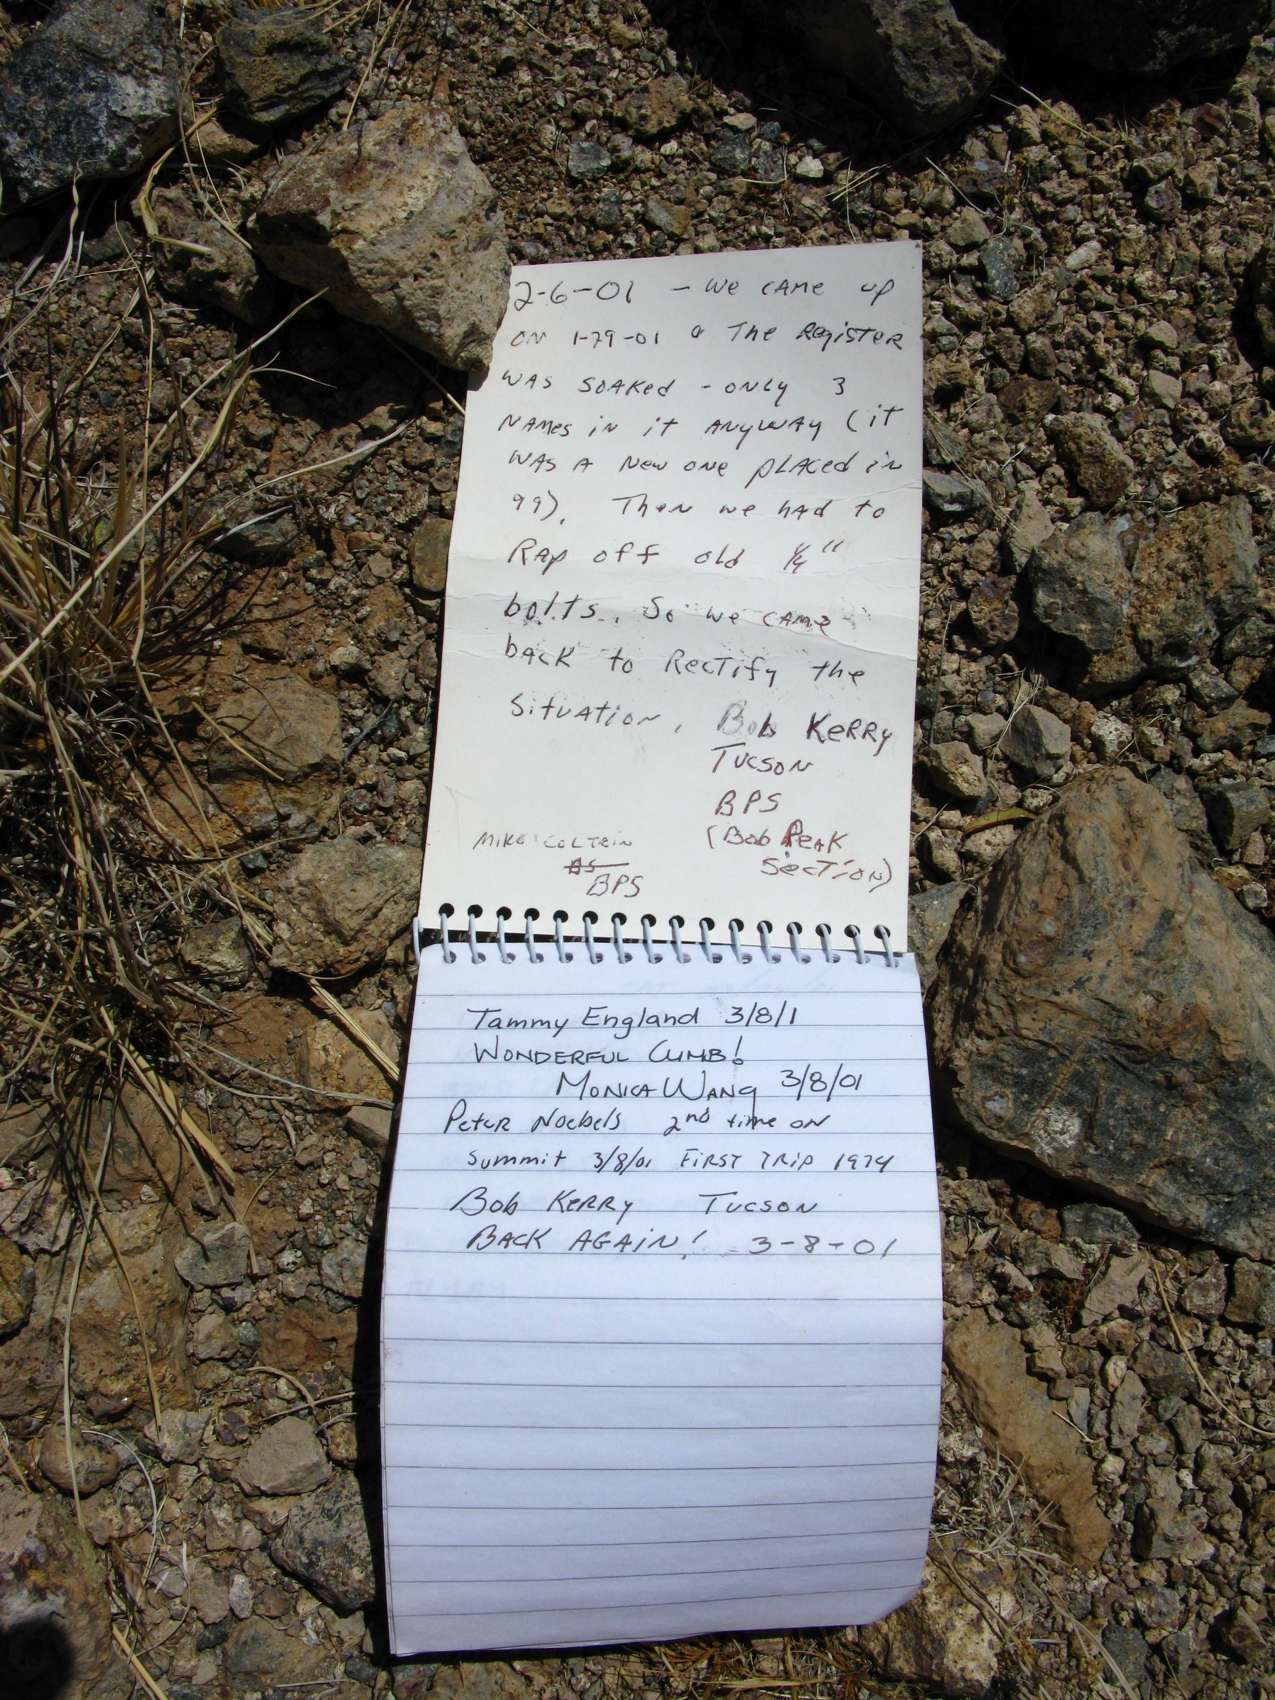 2-6-01 - We came up
on 1-29-01 & The Register
was soaked - only 3
names in it anyway (it
was a new one placed in
99). Then we had to
Rap off old 1/4"
bolts. So we came
back to Rectify the
Situation. Bob Kerry
Tucson
BPS
(Bob Peak
Section)
Mike Coltrin
BPS
Tammy England 3/8/1
Wonderful Climb!
Monica Wang 3/8/01
Peter Noebels 2nd time on
summit 3/8/01 First Trip 1974
Bob Kerry Tucson
Back Again! 3-8-01